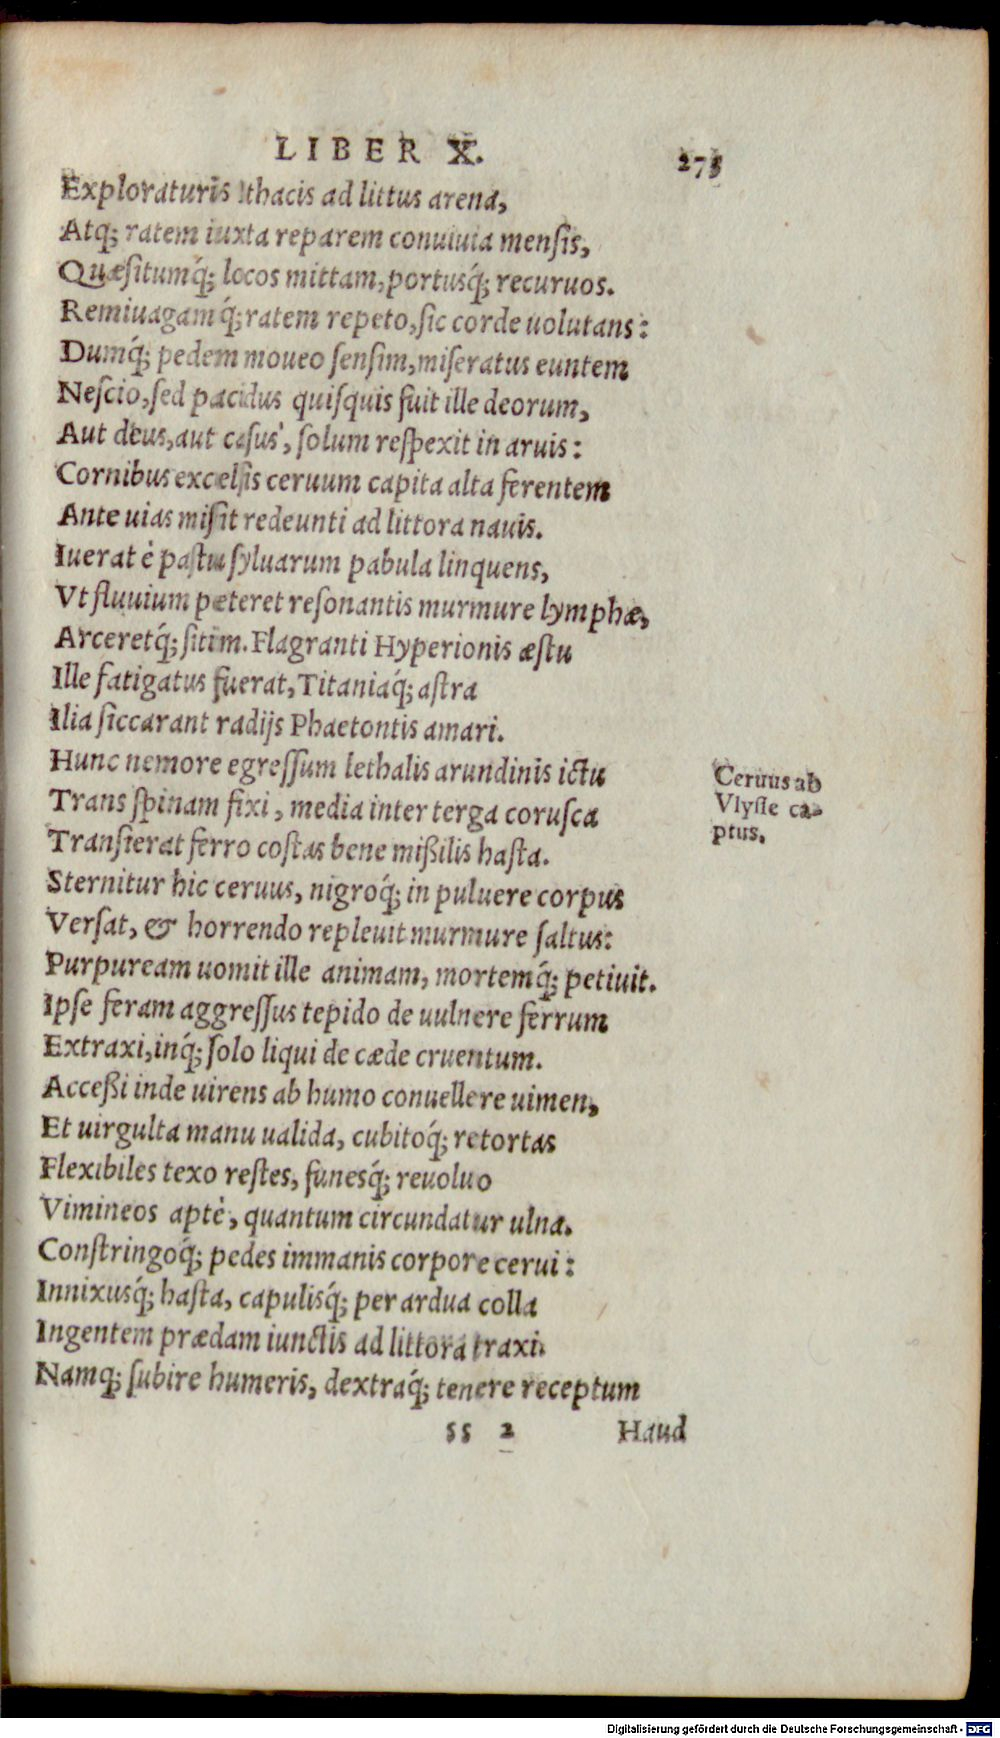 LIBER X. 273
Exploraturis Ithacis ad littus arena,
Atq; ratem iuxta reparem conuiuia mensis,
Quæsitumq́; locos mittam, portusq́; recuruos.
Remiuagamq́; ratem repeto, sic corde uolutans:
Dumq́; pedem moueo sensim, miseratus euntem
Nescio, sed pacidus quisquis fuit ille deorum,
Aut deus, aut casus, solum respexit in aruis:
Cornibus excelsis ceruum capita alta ferentem
Ante uias misit redeunti ad littora nauis.
Iuerat è pastu syluarum pabula linquens,
Vt fluuium peteret resonantis murmure lymphæ,
Arceretq́; sitim. Flagranti Hyperionis æstu
Ille fatigatus fuerat, Titaniaq́; astra
Ilia siccarant radijs Phaetontis amari.
Hunc nemore egressum lethalis arundinis ictu
Trans spinam fixi, media inter terga corusca
Transierat ferro costas bene mißilis hasta.
Sternitur hic ceruus, nigroq́; in puluere corpus
Versat, & horrendo repleuit murmure saltus:
Purpuream uomit ille animam, mortemq́; petiuit.
Ipse feram aggressus tepido de uulnere ferrum
Extraxi, inq́; solo liqui de cæde cruentum.
Acceßi inde uirens ab humo conuellere uimen,
Et uirgulta manu ualida, cubitoq́; retortas
Flexibiles texo restes, funesq́; reuoluo
Vimineos aptè, quantum circundatur ulna.
Constringoq́; pedes immanis corpore cerui:
Innixusq́; hasta, capulisq́; per ardua colla
Ingentem prædam iunctis ad littora traxi.
Namq; subire humeris, dextraq́; tenere receptum
ss 2 Haud
Ceruus ab
Vlysse ca-
ptus.
Digitalisierung gefördert durch die Deutsche Forschungsgemeinschaft - DFG